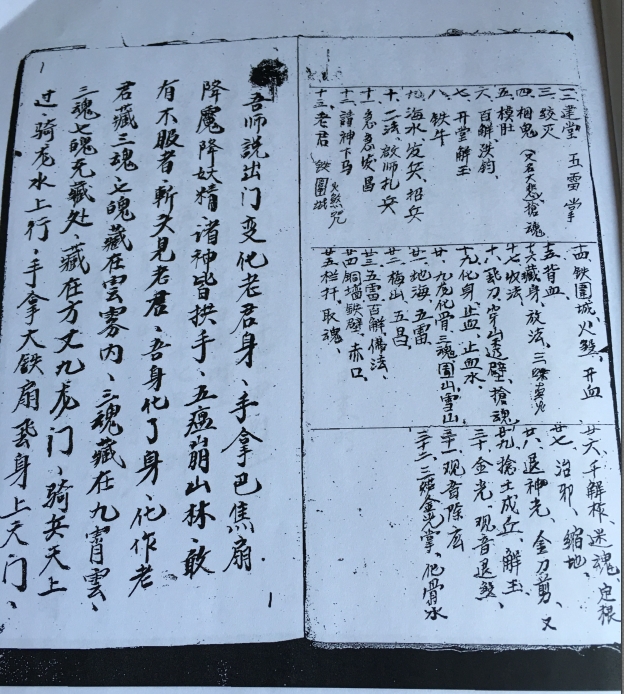 一二建堂 五雷掌
三、绞灭
四、相鬼(又名大悲)抢魂
五、模肚
六、百解洪钧
七、开堂解玉
八、铁牛
九、海水发兵、招兵
十、二法、敕师扎兵
十一、急急炭昌
十二、请神下马
十三、老君 铁围城 火煞咒
十四、铁围城火煞、开血
十五、背血、
十六、藏身、放法、三
十七、收法、
十八、飞刀、穿山透壁、抢魂
十九、化身、止血、止血水、
廿、九龙化骨、三魂围山雪山
廿一、地海、五雷
廿二、梅山、五昌、
廿三、五雷百解佛法、
廿四、铜墙铁壁、赤口、
廿五、栏杆、取魂、
廿六、千解根、迷魂、定根
廿七、治邪、缩地、
廿八、退神光、金刀剪、又
廿九、抢土成丘、解玉、
三十、金光、观音退煞、
三十一、观音除
三十二、三 金光掌、化骨水
吾师説出门变化老君身、手拿巴焦扇
降魔降妖精、诸神皆拱手、五瘟崩山林、敢
有不服者、斬头見老君、吾身化了身、化作老
君藏三魂、七魄藏在雲雾内、三魂藏在九霄雲、
三魂七魄无藏处、藏在方丈九龙门、骑兵天上
过、骑龙水上行、手拿大铁扇飛身上天门、
1
1